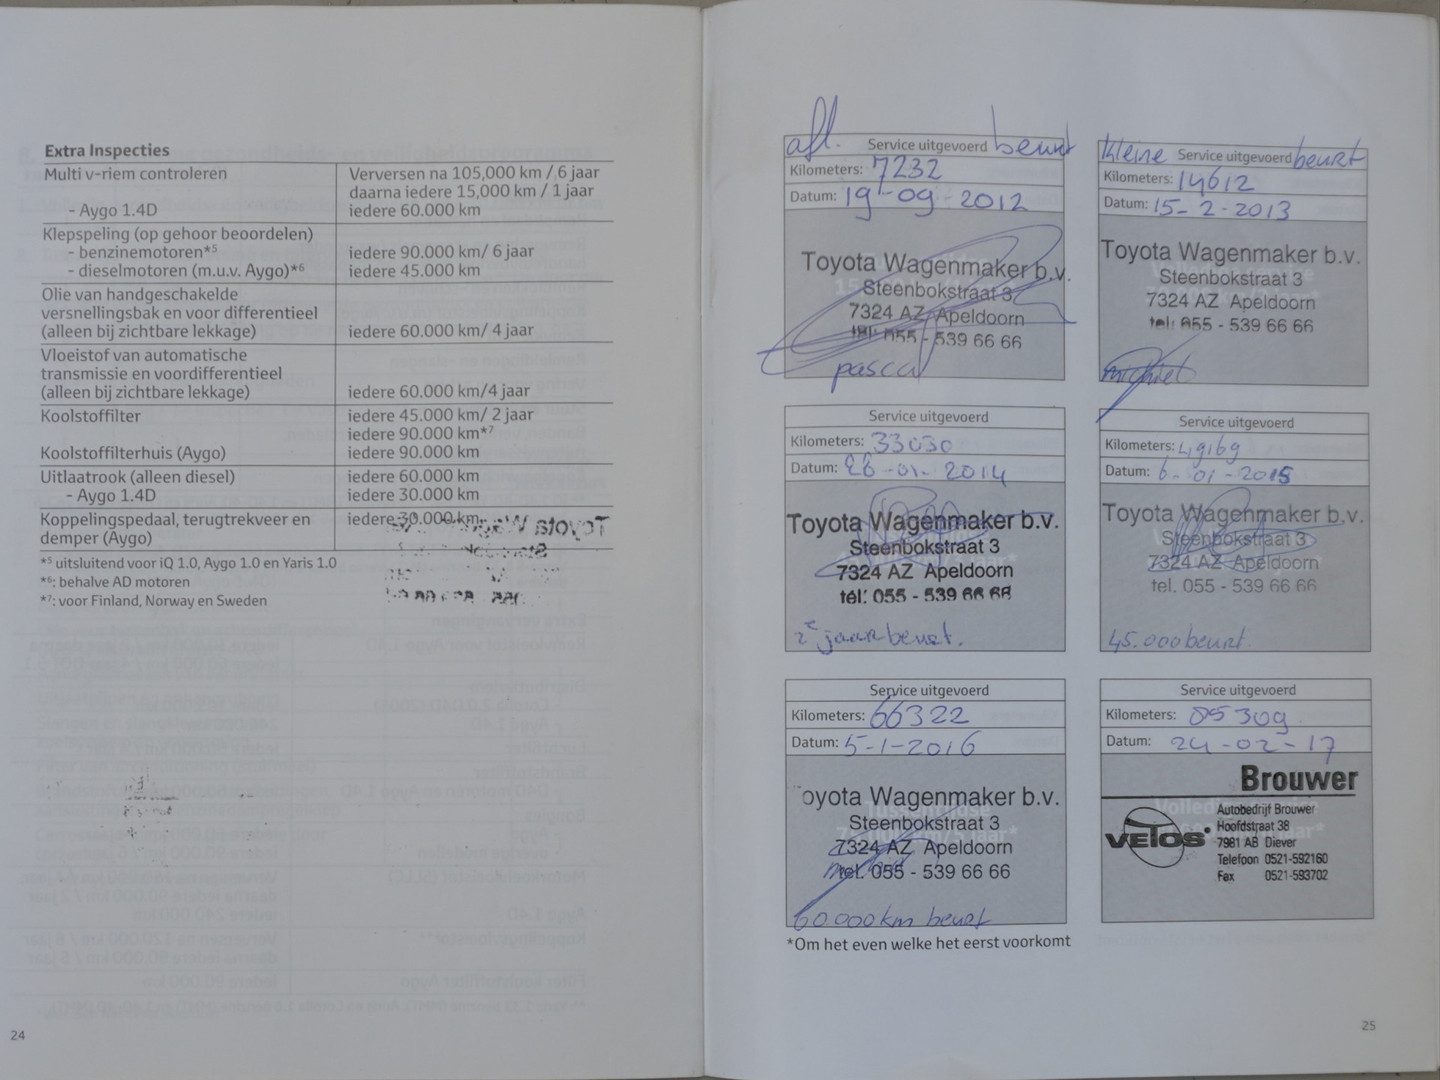 Extra Inspecties
Multi v-riem controleren Verversen na 105,000 km / 6 jaar
daarna iedere 15,000 km / 1 jaar
- Aygo 1.4D iedere 60.000 km
Klepspeling (op gehoor beoordelen)
- benzinemotoren*5 iedere 90.000 km/ 6 jaar
- dieselmotoren (m.u.v. Aygo)*6 iedere 45.000 km
Olie van handgeschakelde
versnellingsbak en voor differentieel
(alleen bij zichtbare lekkage) iedere 60.000 km/ 4 jaar
Vloeistof van automatische
transmissie en voordifferentieel
(alleen bij zichtbare lekkage) iedere 60.000 km/4 jaar
Koolstoffilter iedere 45.000 km/ 2 jaar
iedere 90.000 km*7
Koolstoffilterhuis (Aygo) iedere 90.000 km
Uitlaatrook (alleen diesel) iedere 60.000 km
- Aygo 1.4D iedere 30.000 km
Koppelingspedaal, terugtrekveer en iedere 30.000 km
demper (Aygo)
*5 uitsluitend voor iQ 1.0, Aygo 1.0 en Yaris 1.0
*6: behalve AD motoren
*7: voor Finland, Norway en Sweden
24
afl. Service uitgevoerd beurt
Kilometers: 7232
Datum: 19-09-2012
Toyota Wagenmaker b.v.
Steenbokstraat 3
7324 AZ Apeldoorn
tel. 055 - 539 66 66
pascal
kleine Service uitgevoerd beurt
Kilometers: 14612
Datum: 15-2-2013
Toyota Wagenmaker b.v.
Steenbokstraat 3
7324 AZ Apeldoorn
tel. 055 - 539 66 66
michiel
Service uitgevoerd
Kilometers: 33030
Datum: 26-01-2014
Toyota Wagenmaker b.v.
Steenbokstraat 3
7324 AZ Apeldoorn
tel. 055 - 539 66 66
2e jaarbeurt.
Service uitgevoerd
Kilometers: 49169
Datum: 6-01-2015
Toyota Wagenmaker b.v.
Steenbokstraat 3
7324 AZ Apeldoorn
tel. 055 - 539 66 66
45.000 beurt.
Service uitgevoerd
Kilometers: 66322
Datum: 5-1-2016
oyota Wagenmaker b.v.
Steenbokstraat 3
7324 AZ Apeldoorn
tel. 055 - 539 66 66
60.000km beurt
Service uitgevoerd
Kilometers: 85309
Datum: 24-02-17
Brouwer
VETOS
Autobedrijf Brouwer
Hoofdstraat 38
7981 AB Diever
Telefoon 0521-592160
Fax 0521-593702
*Om het even welke het eerst voorkomt
25